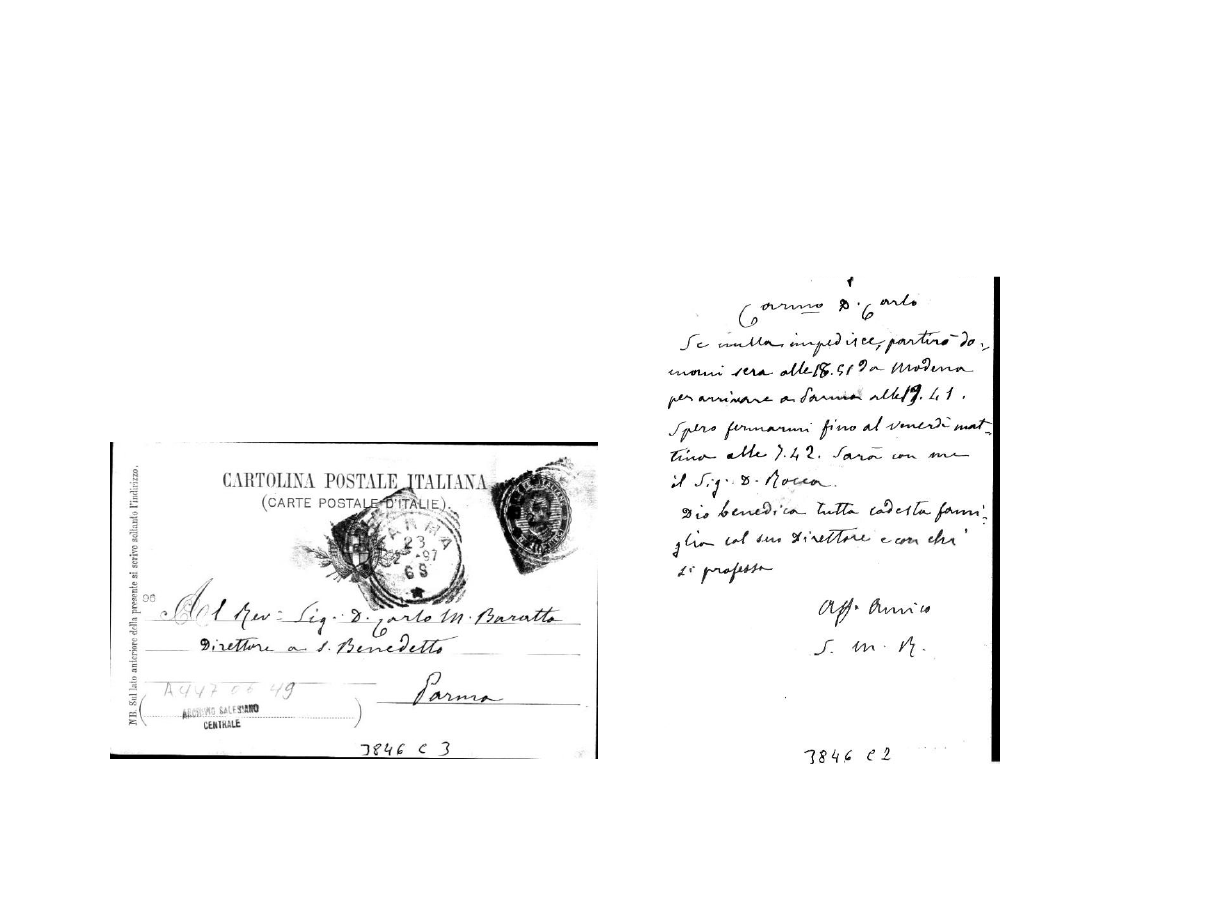 CARTOLINA POSTALE ITALIANA
(CARTE POSTALE D'ITALIE)
NB. Sul lato anteriore della presente si scrive soltanto l'indirizzo.
PARMA
23
2 -97
6 S
96
Al Rev. Sig. D. Carlo M. Baratta
Direttore a S. Benedetto
Parma
A4470649
ARCHIVIO SALESIANO
CENTRALE
3846 C 3
Carmo D. Carlo
Se nulla impedisce, partirò do-
mani sera alle 18.51 da Modena
per arrivare a Parma alle 19.41.
Spero fermarmi fino al venerdì mat-
tina alle 7.42. Sarà con me
il Sig. D. Rocca.
Dio benedica tutta codesta fami-
glia col suo Direttore e con chi
si professa
Aff. Amico
S. M. R.
3846 C 2